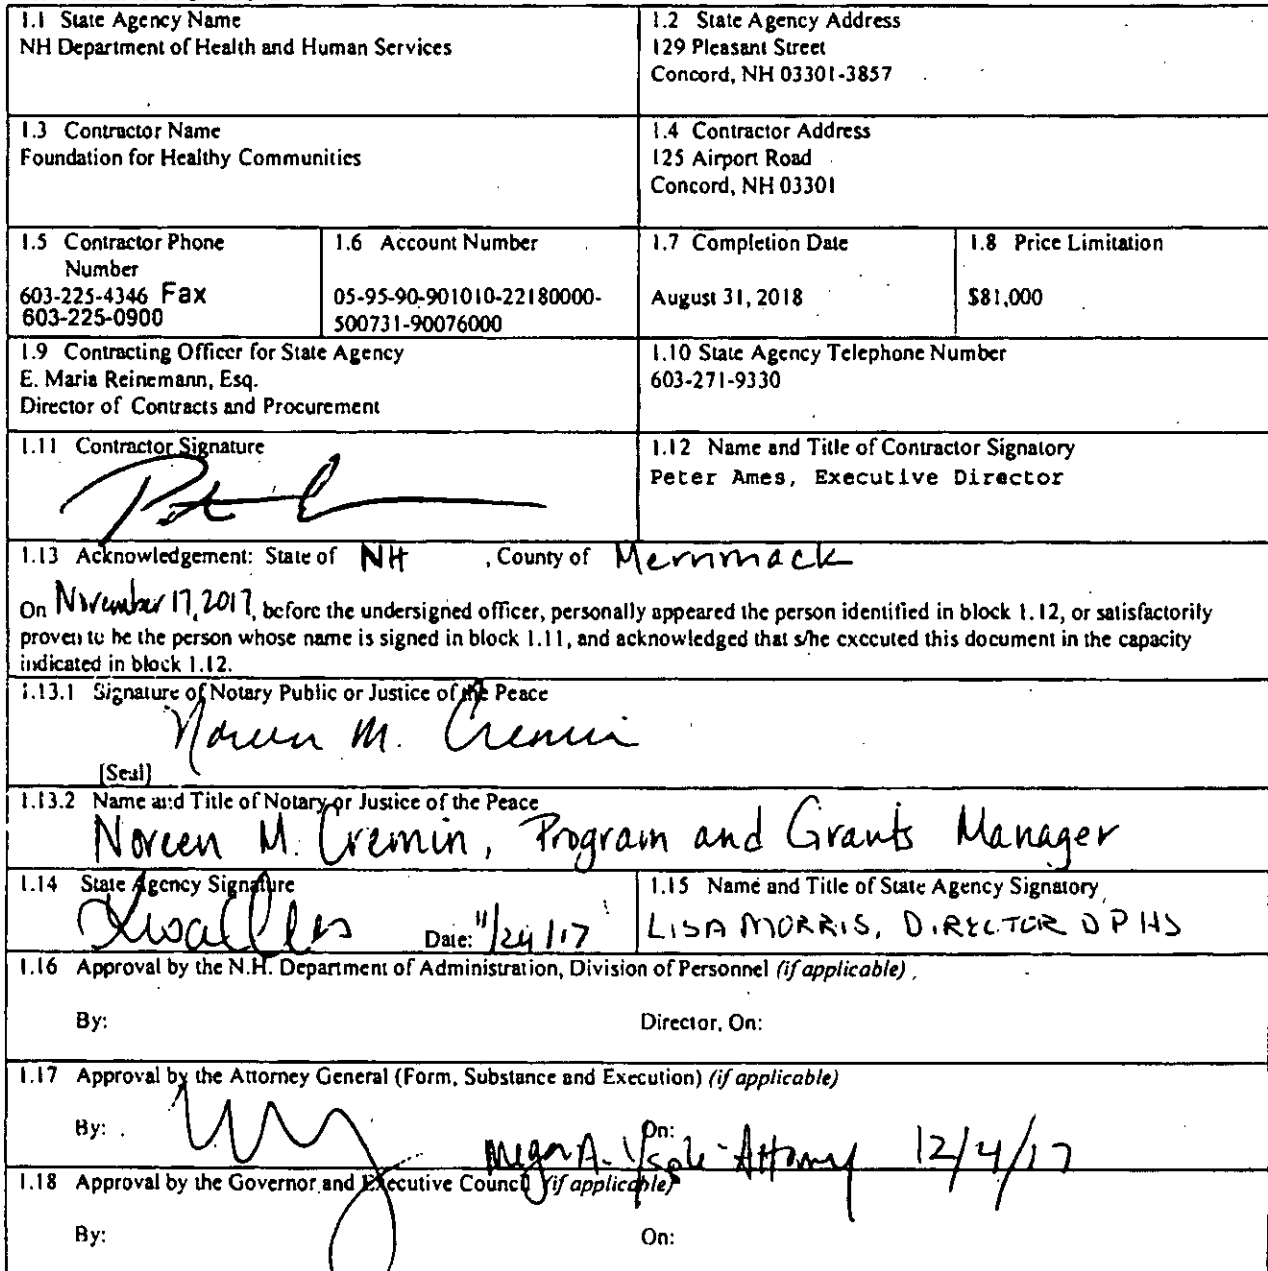 1.1 State Agency Name
NH Department of Health and Human Services
1.2 State Agency Address
129 Pleasant Street
Concord, NH 03301-3857
1.3 Contractor Name
Foundation for Healthy Communities
1.4 Contractor Address
125 Airport Road
Concord, NH 03301
1.5 Contractor Phone
Number
603-225-4346 Fax
603-225-0900
1.6 Account Number
05-95-90-901010-22180000-
500731-90076000
1.7 Completion Date
August 31, 2018
1.8 Price Limitation
$81,000
1.9 Contracting Officer for State Agency
E. Maria Reinemann, Esq.
Director of Contracts and Procurement
1.10 State Agency Telephone Number
603-271-9330
1.11 Contractor Signature
1.12 Name and Title of Contractor Signatory
Peter Ames, Executive Director
1.13 Acknowledgement: State of NH , County of Merrimack
On November 17, 2017, before the undersigned officer, personally appeared the person identified in block 1.12, or satisfactorily
proven to be the person whose name is signed in block 1.11, and acknowledged that s/he executed this document in the capacity
indicated in block 1.12.
1.13.1 Signature of Notary Public or Justice of the Peace
Noreen M. Cremin
[Seal]
1.13.2 Name and Title of Notary or Justice of the Peace
Noreen M. Cremin, Program and Grants Manager
1.14 State Agency Signature
Date: 11/24/17
1.15 Name and Title of State Agency Signatory
LISA MORRIS, DIRECTOR DPHS
1.16 Approval by the N.H. Department of Administration, Division of Personnel (if applicable)
By:
Director, On:
1.17 Approval by the Attorney General (Form, Substance and Execution) (if applicable)
By:
On:
Megan A. Attorney 12/4/17
1.18 Approval by the Governor and Executive Council (if applicable)
By:
On: